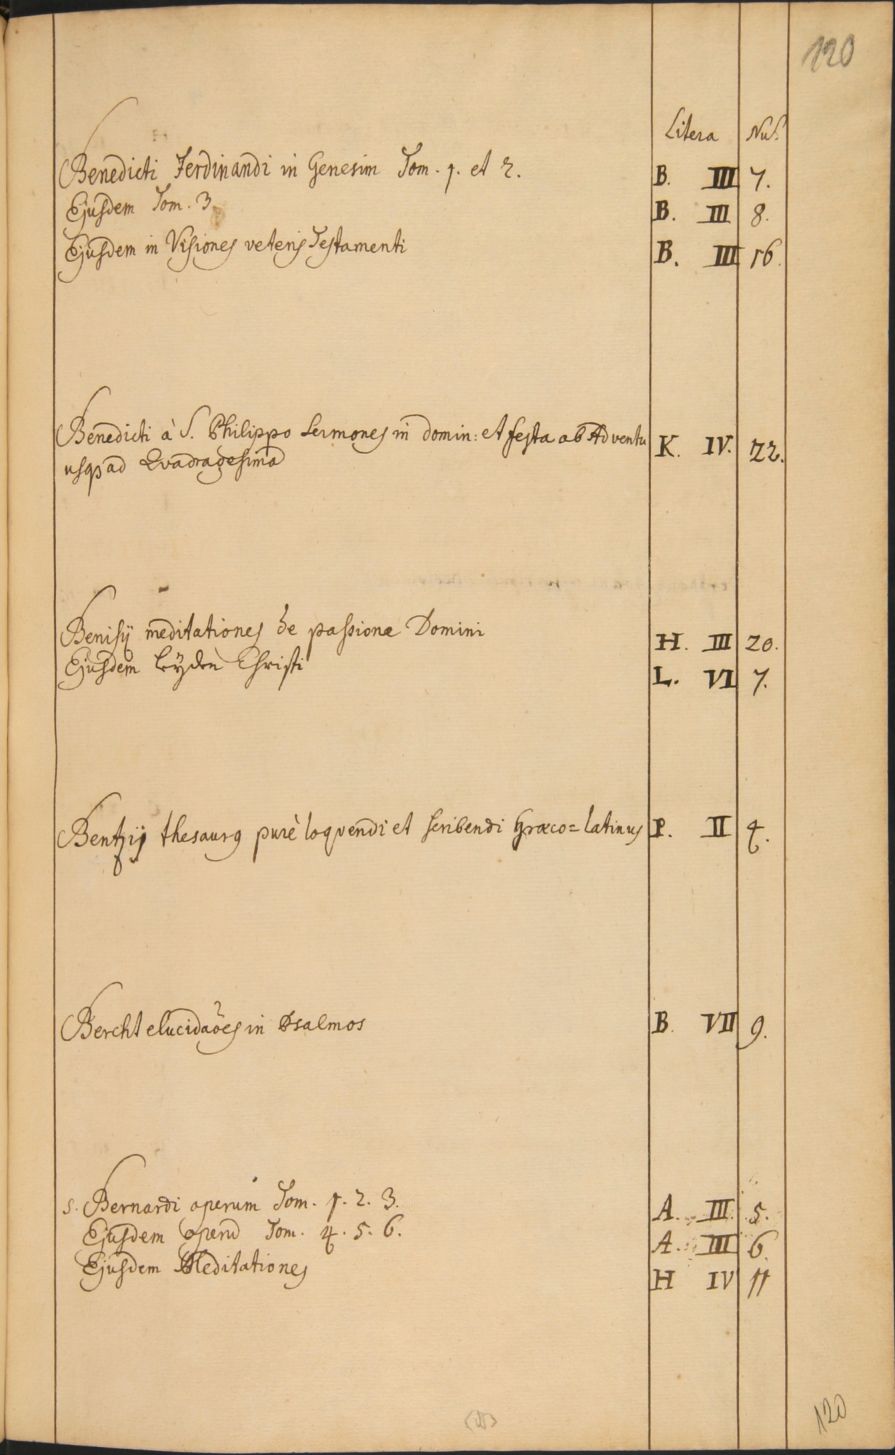 120
Litera Nus.
Benedicti Ferdinandi in Genesim Tom. 1. et 2. B. III 7.
Ejusdem Tom. 3. B. III 8.
Ejusdem in Visiones veteris Testamenti B. III 16.
Benedicti à S. Philippo Sermones in domin: et festa ab Adventu K. IV. 22.
usq ad Quadragesimã
Benisij meditationes de passione Domini H. III 20.
Ejusdem Leÿden Christi L. VI 7.
Bentzij thesaurg purè loqvendi et scribendi Græco=Latinus P. II 4.
Bercht elucidaões in Psalmos B. VII 9.
S. Bernardi operum Tom. 1. 2. 3. A. III. 5.
Ejusdem operũ Tom. 4. 5. 6. A. III 6.
Ejusdem Meditationes H IV 11
120